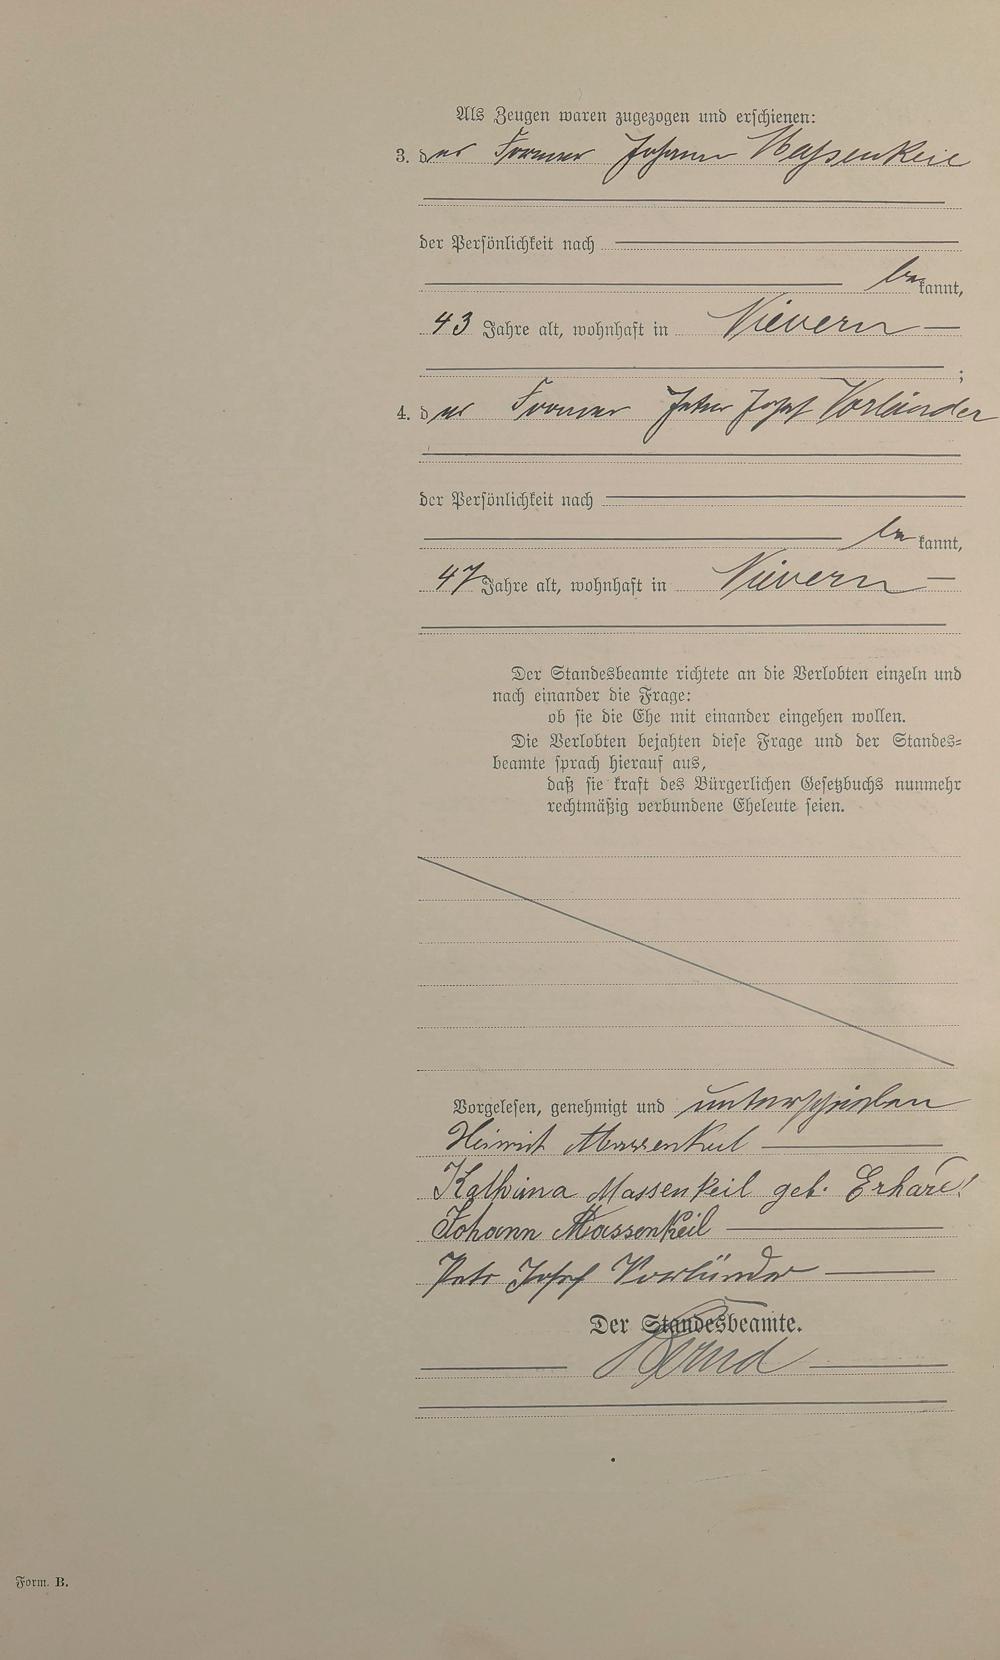 Als Zeugen waren zugezogen und erschienen:
3. der Former Johann Massenkeil
der Persönlichkeit nach
bekannt,
43 Jahre alt, wohnhaft in Nievern
;
4. der Former Peter Josef Vorländer
der Persönlichkeit nach
bekannt,
47 Jahre alt, wohnhaft in Nievern
Der Standesbeamte richtete an die Verlobten einzeln und
nach einander die Frage:
ob sie die Ehe mit einander eingehen wollen.
Die Verlobten bejahten diese Frage und der Standes=
beamte sprach hierauf aus,
daß sie kraft des Bürgerlichen Gesetzbuchs nunmehr
rechtmäßig verbundene Eheleute seien.
Vorgelesen, genehmigt und unterschrieben
Massenkeil
Kathrina Massenkeil geb.
Johann Massenkeil
Peter Josef Vorländer
Der Standesbeamte.
Form. B.